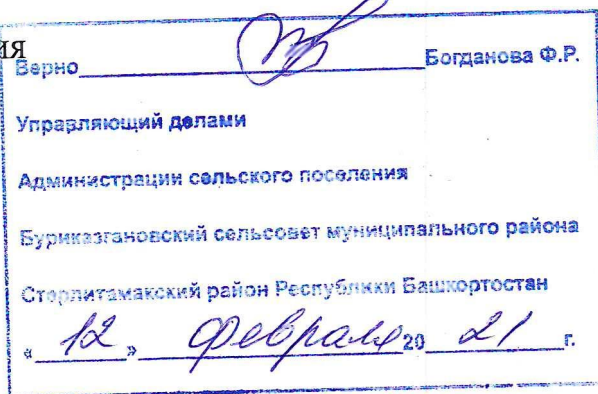 ия
Верно Богданова Ф.Р.
Управляющий делами
Администрации сельского поселения
Буриказгановский сельсовет муниципального района
Стерлитамакский район Республики Башкортостан
« 12 » февраля 20 21 г.